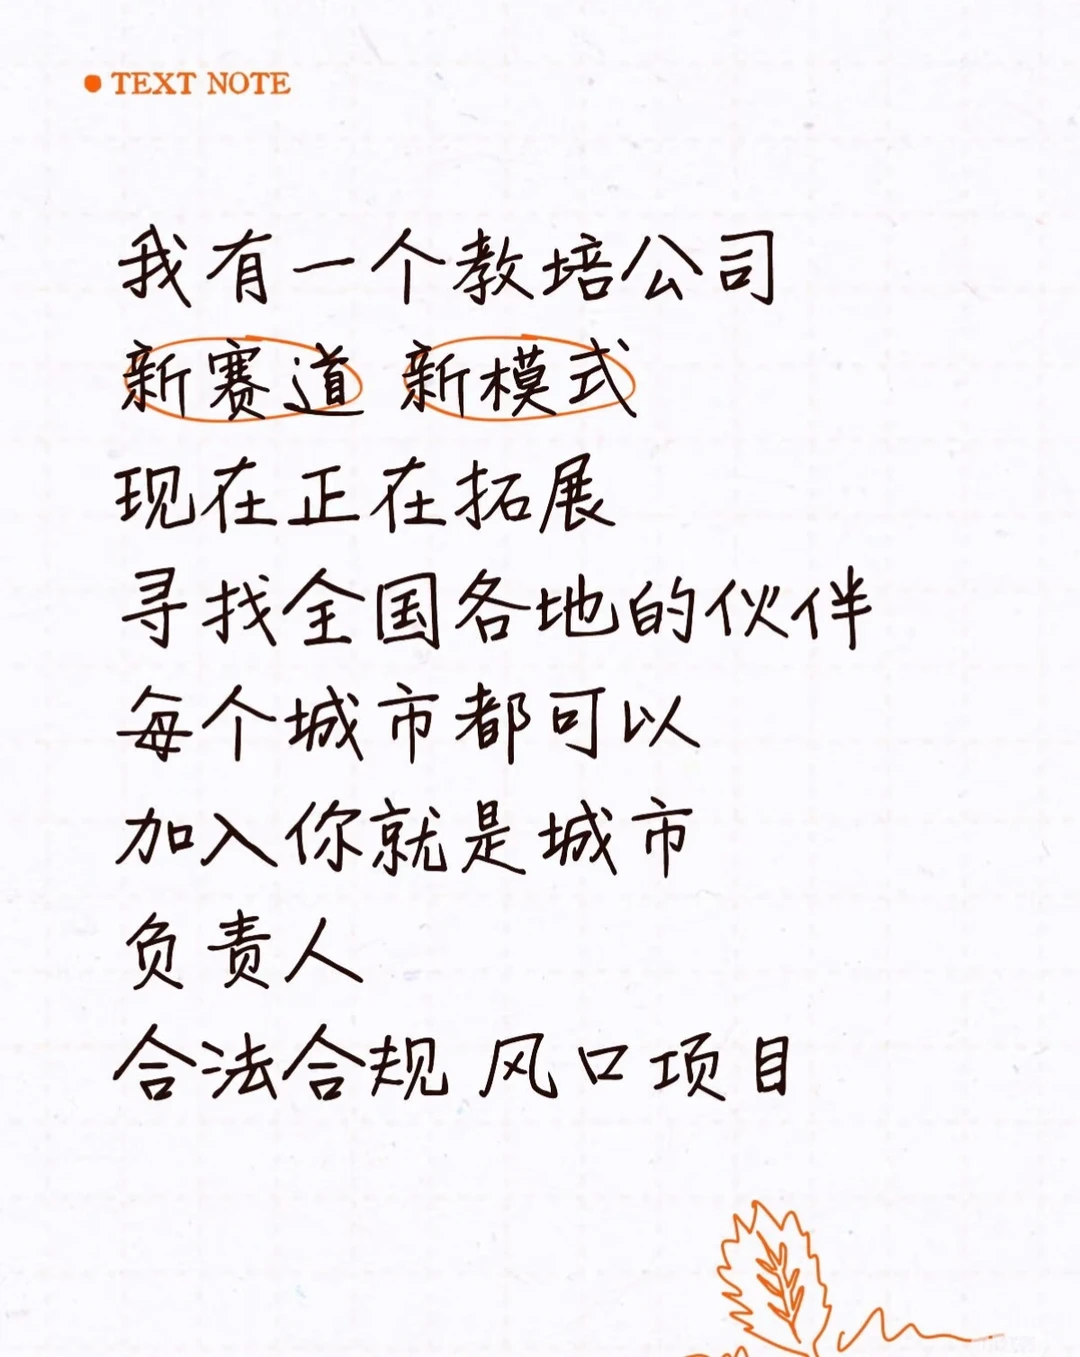 TEXT NOTE
我有一个教培公司
新赛道 新模式
现在正在拓展
寻找全国各地的伙伴
每个城市都可以
加入你就是城市
负责人
合法合规 风口项目